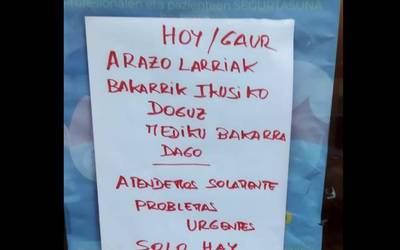 Profesionalen eta pazienteen SEGURTASUNA
HOY/GAUR
ARAZO LARRIAK
BAKARRIK IKUSIKO
DOGUZ
MEDIKU BAKARRA
DAGO
ATENDEMOS SOLAMENTE
PROBLEMAS
URGENTES
SOLO HAY